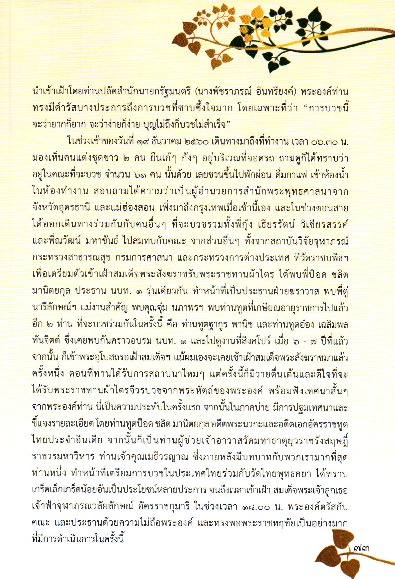 นำเข้าเฝ้าโดยท่านปลัดสำนักนายกรัฐมนตรี (นางพัชราภรณ์ อินทรียงค์) พระองค์ท่าน
ทรงมีดำรัสบางประการถึงการบวชที่ซาบซึ้งใจมาก โดยเฉพาะที่ว่า "การบวชนี้
จะว่ายากก็ยาก จะว่าง่ายก็ง่าย บุญไม่ถึงก็บวชไม่สำเร็จ"
ในช่วงเช้าของวันที่ ๑๙ ธันวาคม ๒๕๖๐ เดินทางมาถึงที่ทำงาน เวลา ๐๖.๓๐ น.
มองเห็นคนแต่งชุดขาว ๒ คน ยืนเก้ๆ กังๆ อยู่บริเวณที่จอดรถ ถามดูก็ได้ทราบว่า
อยู่ในคณะที่จะบวช จำนวน ๖๓ คน นั้นด้วย เลยชวนขึ้นไปพักผ่อน ดื่มกาแฟ เข้าห้องน้ำ
ในห้องทำงาน สอบถามได้ความว่าเป็นผู้อำนวยการสำนักพระพุทธศาสนาจาก
จังหวัดอุดรธานี และแม่ฮ่องสอน เพิ่งมาถึงกรุงเทพเมื่อเช้านี้เอง และในช่วงตอนสาย
ได้ออกเดินทางร่วมกันกับคนอื่นๆ ที่จะบวชรวมทั้งพี่กุ้ง เธียรรัตน์ วิเชียรสรรค์
และพี่ณวัฒน์ มหาชันย์ ไปสมทบกับคณะ จากส่วนอื่นๆ ทั้งจากสถาบันวิจัยจุฬาภรณ์
กระทรวงสาธารณสุข กรมการศาสนา และกระทรวงการต่างประเทศ ที่วัดราชบพิธฯ
เพื่อเตรียมตัวเข้าเฝ้าสมเด็จพระสังฆราชรับพระราชทานผ้าไตร ได้พบพี่ป๊อด ชลิต
มานิตยกุล ประธาน นบท. ๑ รุ่นเดียวกัน ทำหน้าที่เป็นประธานฝ่ายฆราวาส พบพี่ตู่
นารีลักษณ์ฯ แม่งานสำคัญ พบคุณจุ๋ม นภาพรฯ พบท่านทูตที่เกษียณอายุราชการไปแล้ว
อีก ๒ ท่าน ที่จะบวชร่วมกันในครั้งนี้ คือ ท่านทูตฐากูร พานิช และท่านทูตอ๋อง เฉลิมพล
ทันจิตต์ ซึ่งเคยพบกันคราวอบรม นบท. ๑ และไปดูงานที่สิงคโปร์ เมื่อ ๖ - ๗ ปีที่แล้ว
จากนั้น ก็เข้าพระอุโบสถรอเฝ้าสมเด็จฯ แม้ผมเองจะเคยเข้าเฝ้าสมเด็จพระสังฆราชมาแล้ว
ครั้งหนึ่ง ตอนที่ท่านได้รับการสถาปนาใหม่ๆ แต่ครั้งนี้ก็มีวายตื่นเต้นและดีใจที่จะ
ได้รับพระราชทานผ้าไตรจีวรบวชจากพระหัตถ์ของพระองค์ พร้อมฟังเทศนาสั้นๆ
จากพระองค์ท่าน นี่เป็นความประทับใจครั้งแรก จากนั้นในภาคบ่าย มีการปฐมเทศนาและ
ชี้แจงรายละเอียด โดยท่านทูตป๊อด ชลิต มานิตยกุล อดีตพระนวกะและอดีตเอกอัครราชทูต
ไทยประจำอินเดีย จากนั้นก็เป็นท่านผู้ช่วยเจ้าอาวาสวัดมหาธาตุยุวราชรังสฤษฎิ์
ราชวรมหาวิหาร ท่านเจ้าคุณเมธีวรญาณ ซึ่งภายหลังมีบทบาทกับพวกเรามากที่สุด
ท่านหนึ่ง ทำหน้าที่เตรียมการบวชในประเทศไทยร่วมกับวัดไทยพุทธคยา ได้ทราบ
เกร็ดเล็กเกร็ดน้อยอันเป็นประโยชน์หลายประการ จนถึงเวลาเข้าเฝ้า สมเด็จพระเจ้าลูกเธอ
เจ้าฟ้าจุฬาภรณวลัยลักษณ์ อัครราชกุมารี ในช่วงเวลา ๑๘.๐๐ น. พระองค์ตรัสกับ
คณะ และประธานด้วยความไม่ถือพระองค์ และทรงพอพระราชหฤทัยเป็นอย่างมาก
ที่มีการดำเนินการในครั้งนี้